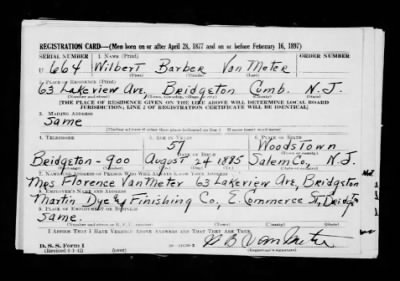 REGISTRATION CARD—(Men born on or after April 28, 1877 and on or before February 16, 1897)
SERIAL NUMBER 1. NAME (Print) ORDER NUMBER
U 664 Wilbert Barber Van Meter
(First) (Middle) (Last)
2. PLACE OF RESIDENCE (Print)
63 Lakeview Ave, Bridgeton Cumb. N.J.
(Number and street) (Town, township, village, or city) (County) (State)
[THE PLACE OF RESIDENCE GIVEN ON THE LINE ABOVE WILL DETERMINE LOCAL BOARD
JURISDICTION; LINE 2 OF REGISTRATION CERTIFICATE WILL BE IDENTICAL]
3. MAILING ADDRESS
Same
(Mailing address if other than place indicated on line 2. If same insert word same)
4. TELEPHONE 5. AGE IN YEARS 6. PLACE OF BIRTH
57 Woodstown
Bridgeton-900 August 24 1885 Salem Co, N.J.
7. NAME AND ADDRESS OF PERSON WHO WILL ALWAYS KNOW YOUR ADDRESS
Mrs Florence VanMeter 63 Lakeview Ave, Bridgeton
8. EMPLOYER'S NAME AND ADDRESS
Martin Dye & Finishing Co, E. Commerce St, Bridgeton
9. PLACE OF EMPLOYMENT OR BUSINESS
Same.
I AFFIRM THAT I HAVE VERIFIED ABOVE ANSWERS AND THAT THEY ARE TRUE.
D. S. S. Form 1
W B VanMeter